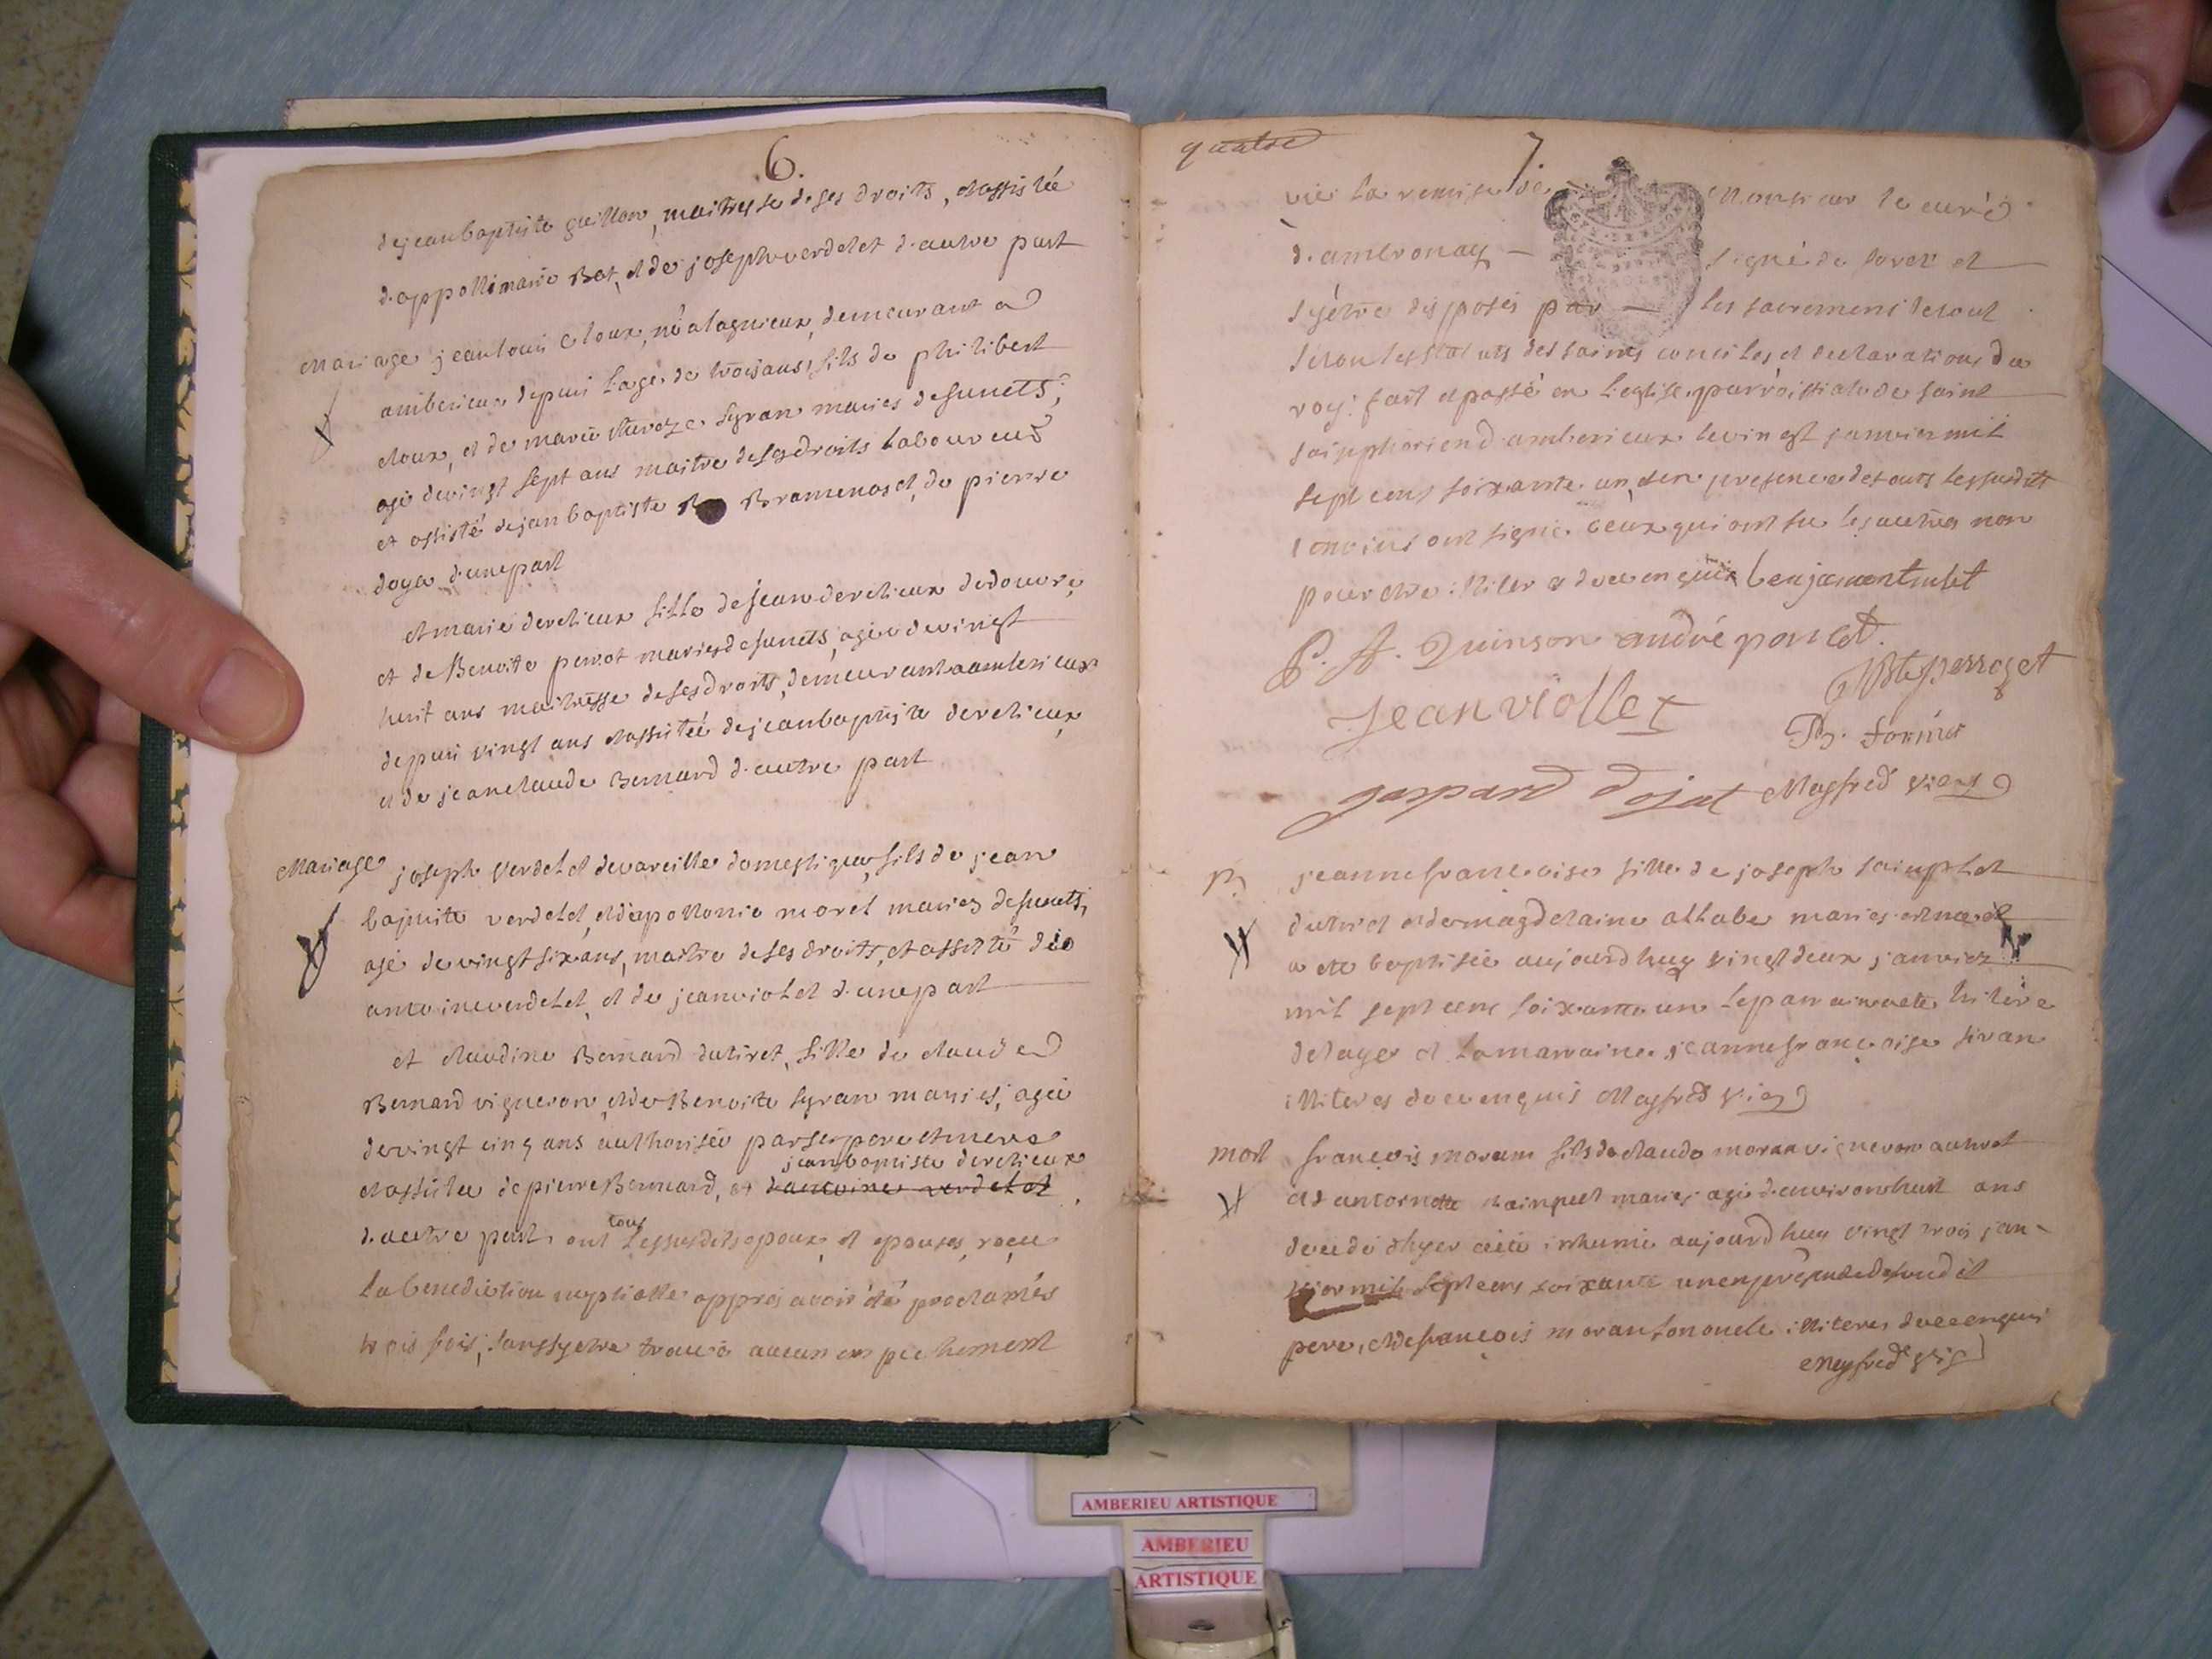 6.
de jean baptiste guillon, maitresse de ses droits, et assistée
d'appollinaire Bot, et de joseph verdelet d'autre part
Mariage jean louis cloux, né a lagnieux, demeurant a
amberieux depuis l'age de trois ans, fils de philibert
cloux, et de marie syran mariés defuncts,
agé de vingt sept ans maitre de ses droits laboureur
et assisté de jean baptiste Bramenas et de pierre
doya d'une part
et marie derclieux fille de jean derclieux de douvre,
et de Benoite perrot mariés defuncts, agée de vingt
huit ans maitresse de ses droits, demeurant a amberieux
depuis vingt ans et assistée de jean baptiste derclieux
et de jean claude Bernard d'autre part
Mariage joseph verdelet de vareille domestique, fils de jean
baptiste verdelet, et d'apollonie morel mariés defuncts,
agé de vingt six ans, maitre de ses droits, et assisté de
antoine verdelet, et de jean violet d'une part
et claudine Bernard du tiret, fille de claude
Bernard vigneron, et de Benoite syran mariés, agée
de vingt cinq ans authorisée par ses pere et mere
jean baptiste derclieux
et assistée de pierre Bernard, et d'antoine verdelet
d'autre part, ont tous les susdits epoux, et epouses, reçu
la benediction nuptialle appres avoir été proclamés
trois fois, sans s'y etre trouvé aucun empechement
quatre
7.
vue la remise de Monsieur le curé
d'ambronay — signé de foret et
s'y être disposés par — les sacremens le tout
selon les statuts des saints conciles et declarations du
roy: fait et passé en l'eglise parroissiale de saint
saimphorien d'amberieux le vingt janvier mil
sept cens soixante un, et en presence de touts les susdits
convius ont signé ceux qui ont su les autres non
pour etre illiteres de ce enquis
P. A. Quinson andré poncet.
jean viollet
JBte perroget
gaspard dojat Meyfred vic
B. jeanne françoise fille de joseph
du tiret et de magdelaine allabe mariés
a eté baptisée aujourdhuy vingt deux janvier
mil sept cens soixante un le parrain
et la marraine jeanne françoise siran
illiteres de ce enquis Meyfred vic
mort françois moran fils de claude moran vigneron au tiret
et d'antoinette mariés agé d'environ huit ans
decedé d'hyer a eté inhumé aujourdhuy vingt trois jan-
vier mil sept cens soixante un en presence de sondit
pere, et de françois moran son oncle illiteres de ce enquis
Meyfred vic
AMBERIEU ARTISTIQUE
AMBERIEU
ARTISTIQUE